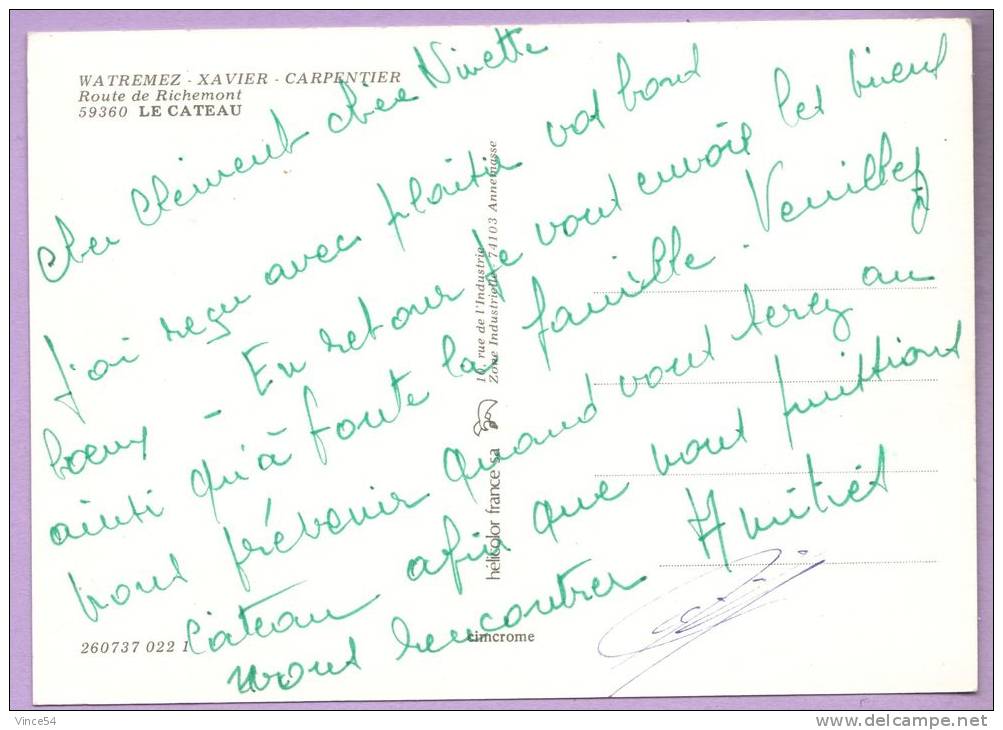 WATREMEZ - XAVIER - CARPENTIER
Route de Richemont
59360 LE CATEAU
Cher Clément chère Ninette
J'ai reçu avec plaisir vos bons
voeux - En retour je vous envoie les miens
ainsi qu'à toute la famille. Veuillez
nous prévenir quand vous serez au
Cateau afin que nous puissions
nous rencontrer Amitiés
10, rue de l'Industrie
Zone Industrielle 74103 Annemasse
hélicolor france sa
cimcrome
260737 022 1
Vince54
www.delcampe.net